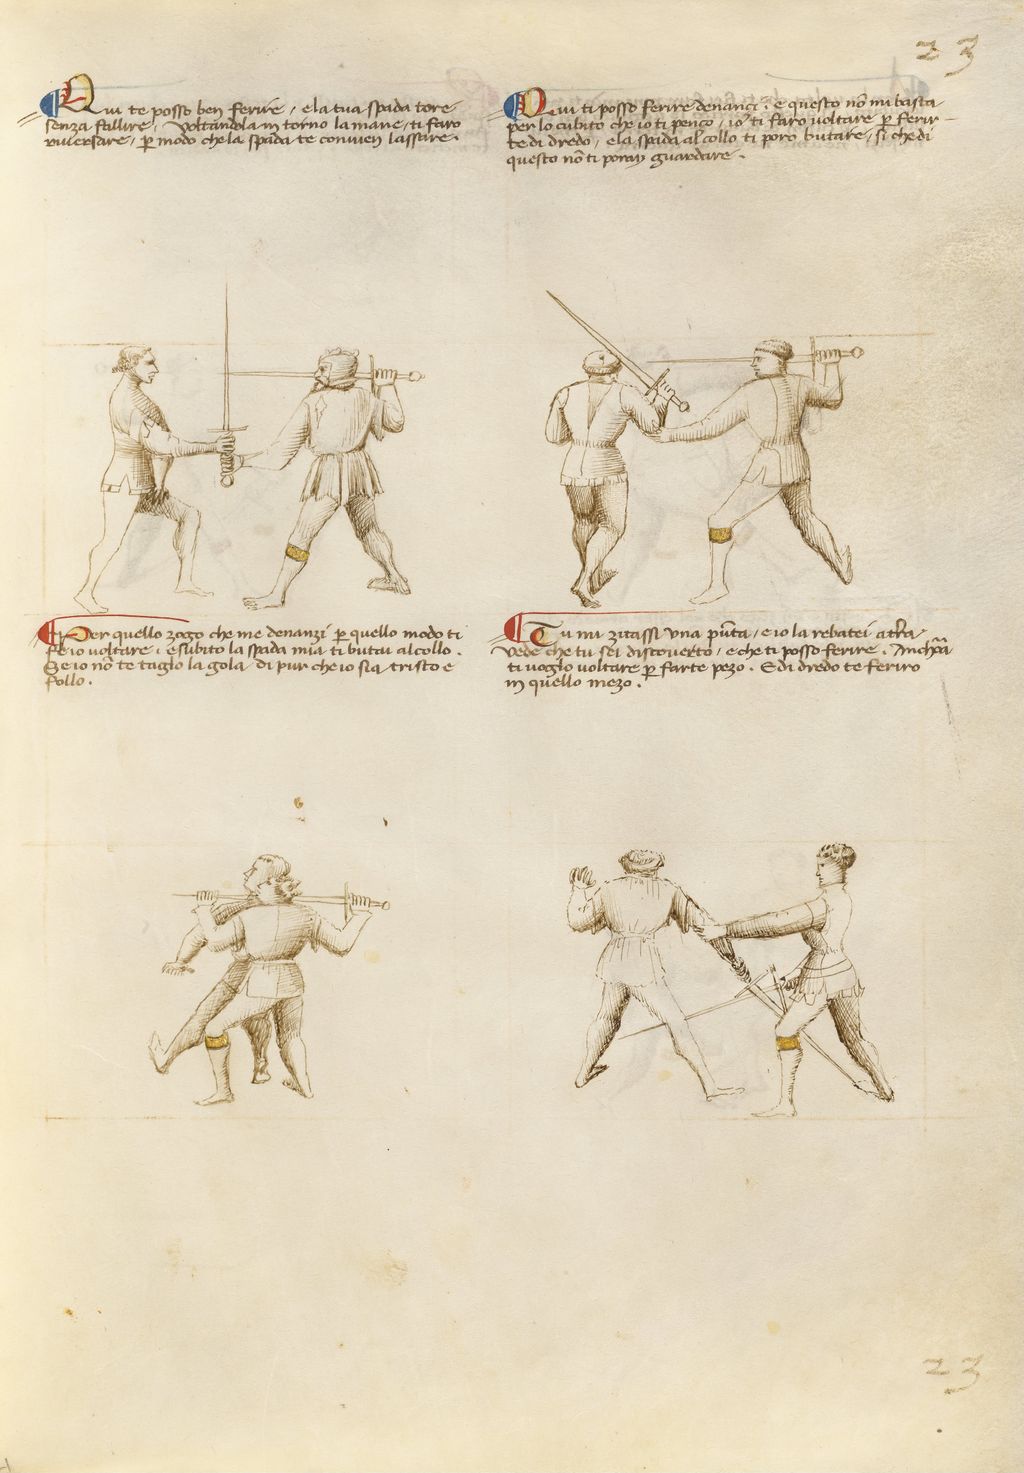 23
Qui te posso ben ferire / e la tua spada tore
senza fallire / Voltandola in torno la mane / ti faro
riversare / p̱ modo che la spada te convien lassare.
Qui ti posso ferire denanci / e questo nō mi basta
per lo cubito che io ti penço / io ti faro voltare p̱ ferir-
te di dredo / e la spada al collo ti poro butare / si che di
questo nō ti poray guardare.
Per quello zogo che me denanzi p̱ quello modo ti
fe io voltare / e subito la spada mia ti butai al collo.
Se io nō te taglo la gola / di pur che io sia tristo e
follo.
Tu mi zitassi una pūta / e io la rebatei a tr̄a
Vede che tu sei discoverto / e che ti posso ferire. Anchora
ti voglo voltare p̱ farte pezo. E di dredo te feriro
in quello mezo.
23